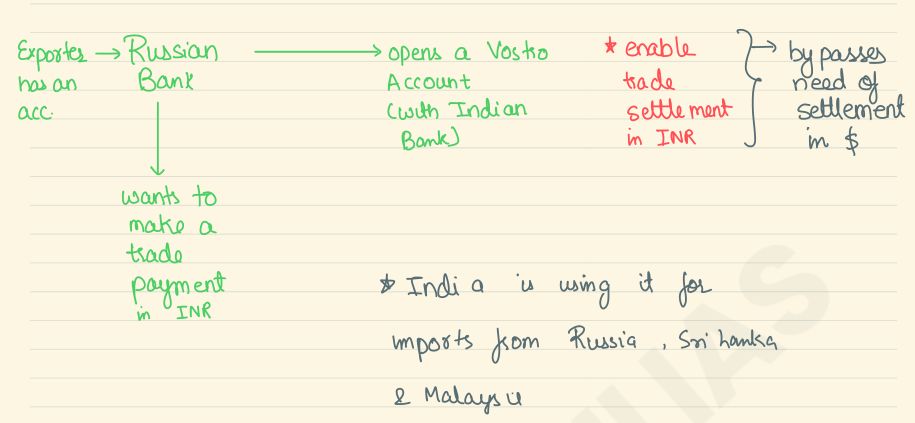 Exporter → Russian Bank → opens a Vostro Account (with Indian Bank)
has an
acc.
* enable
trade
settlement
in INR
→ by passes
need of
settlement
in $
wants to
make a
trade
payment
in INR
* India is using it for
imports from Russia, Sri Lanka
& Malaysia
IAS